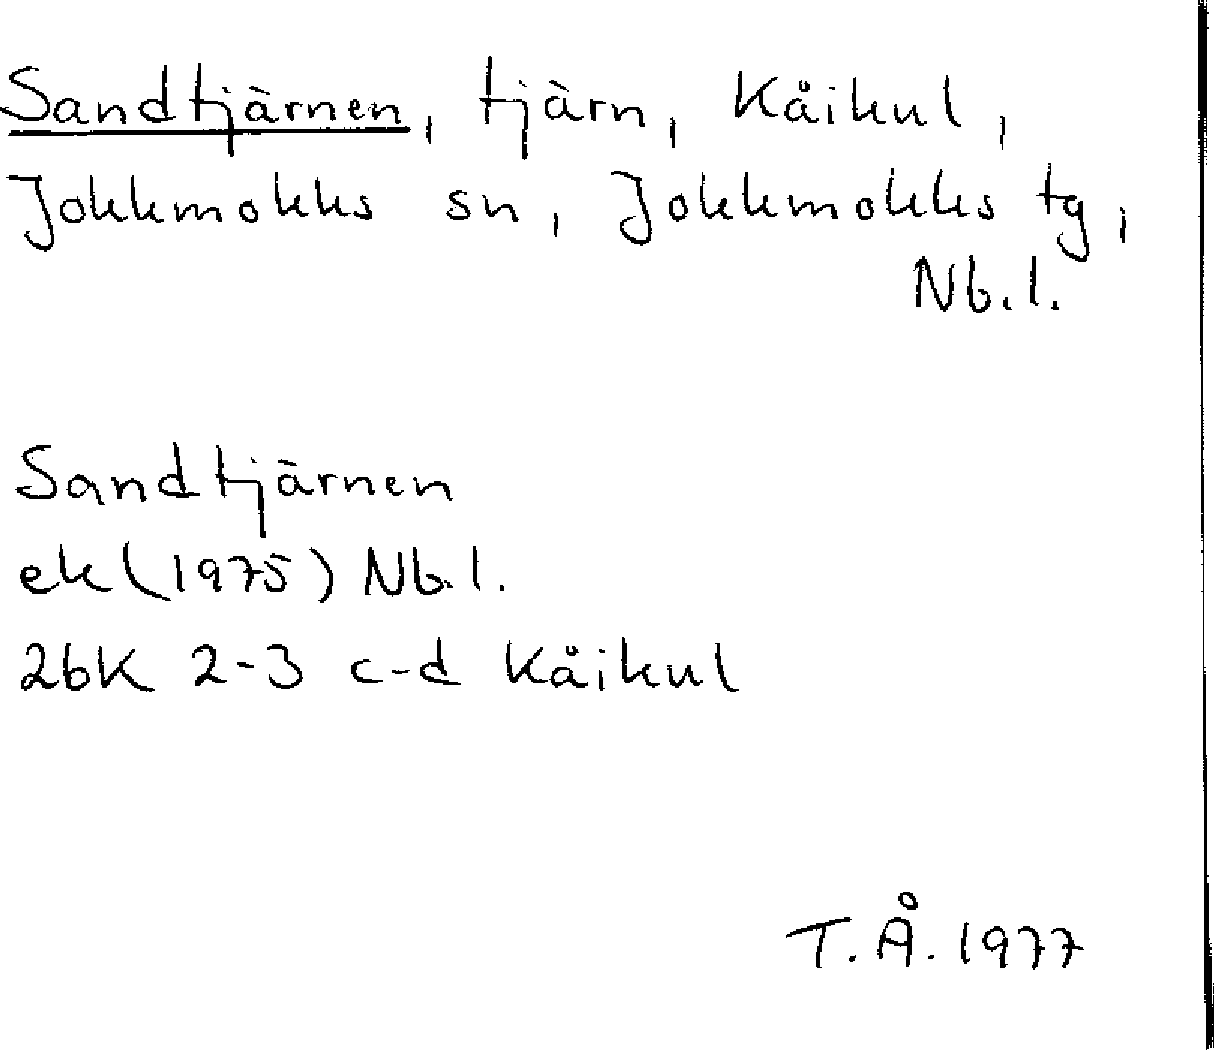 Sandtjärnen, tjärn, Kåikul,
Jokkmokks sn, Jokkmokks tg,
Nb.l.
Sandtjärnen
ek (1975) Nb.l.
26K 2-3 c-d Kåikul
T.Å. 1977